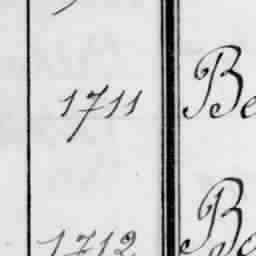 1711 Be
1712 Bo